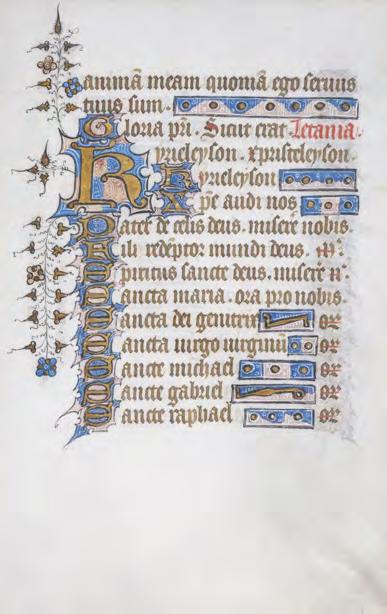 animā meam quoniā ego seruus
tuus sum.
Gloria pr̄i. Sicut erat. Letania.
Kyrieleyson. xpristeleyson.
Kyrieleyson
Xp̄e audi nos
Pater de celis deus. miserē nobis.
Fili redēptor mundi deus. m̄.
Spiritus sancte deus. miserē n̄.
Sancta maria. ora pro nobis.
Sancta dei genitrix or
Sancta uirgo uirginū or
Sancte michael or
Sancte gabriel or
Sancte raphael or